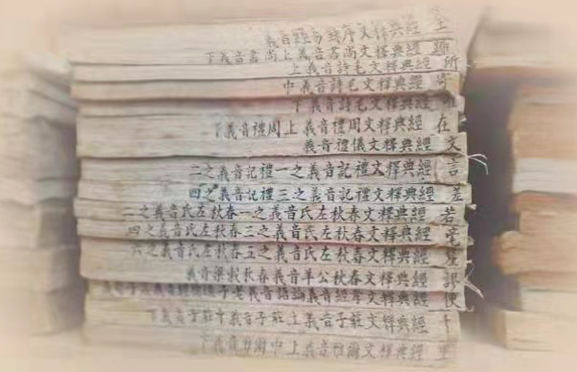 經典釋文序錄易經音義
經典釋文尚書音義上尚書音義下
經典釋文毛詩音義上
經典釋文毛詩音義中
經典釋文毛詩音義下
經典釋文周禮音義上周禮音義下
經典釋文儀禮音義
經典釋文禮記音義之一禮記音義之二
經典釋文禮記音義之三禮記音義之四
經典釋文春秋左氏音義之一春秋左氏音義之二
經典釋文春秋左氏音義之三春秋左氏音義之四
經典釋文春秋左氏音義之五春秋左氏音義之六
經典釋文春秋公羊音義春秋穀梁音義
經典釋文孝經音義論語音義老子
經典釋文莊子音義上莊子音義中
經典釋文爾雅音義上中爾雅音義下
所寄在文言差若毫釐謬便千里